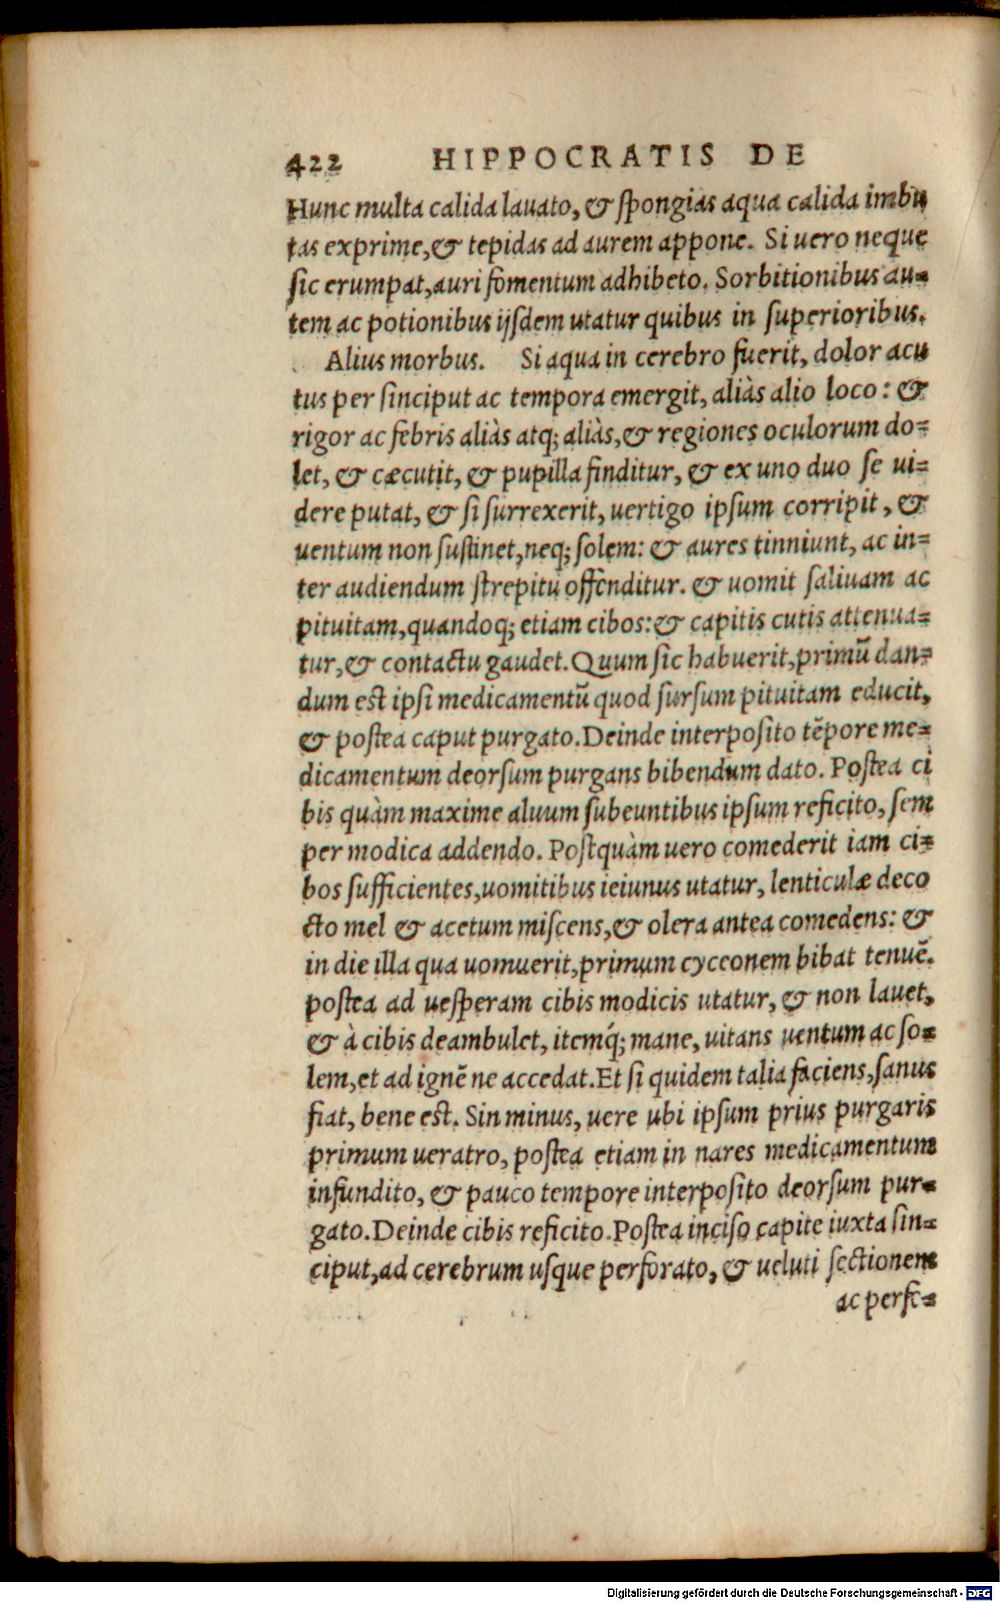 422 HIPPOCRATIS DE
Hunc multa calida lauato, & spongias aqua calida imbu
tas exprime, & tepidas ad aurem appone. Si uero neque
sic erumpat, auri fomentum adhibeto. Sorbitionibus au=
tem ac potionibus ijsdem utatur quibus in superioribus.
Alius morbus. Si aqua in cerebro fuerit, dolor acu
tus per sinciput ac tempora emergit, aliàs alio loco: &
rigor ac febris aliàs atq; aliàs, & regiones oculorum do=
let, & cæcutit, & pupilla finditur, & ex uno duo se ui=
dere putat, & si surrexerit, uertigo ipsum corripit, &
uentum non sustinet, neq; solem: & aures tinniunt, ac in=
ter audiendum strepitu offenditur. & uomit saliuam ac
pituitam, quandoq; etiam cibos: & capitis cutis attenua=
tur, & contactu gaudet. Quum sic habuerit, primũ dan=
dum est ipsi medicamentũ quod sursum pituitam educit,
& postea caput purgato. Deinde interposito tẽpore me=
dicamentum deorsum purgans bibendum dato. Postea ci
bis quàm maxime aluum subeuntibus ipsum reficito, sem
per modica addendo. Postquàm uero comederit iam ci=
bos sufficientes, uomitibus ieiunus utatur, lenticulæ deco
cto mel & acetum miscens, & olera antea comedens: &
in die illa qua uomuerit, primum cyceonem bibat tenuẽ.
postea ad uesperam cibis modicis utatur, & non lauet,
& à cibis deambulet, itemq́; mane, uitans uentum ac so=
lem, et ad ignẽ ne accedat. Et si quidem talia faciens, sanus
fiat, bene est. Sin minus, uere ubi ipsum prius purgaris
primum ueratro, postea etiam in nares medicamentum
infundito, & pauco tempore interposito deorsum pur=
gato. Deinde cibis reficito. Postea inciso capite iuxta sin=
ciput, ad cerebrum usque perforato, & ueluti sectionem
ac perse=
Digitalisierung gefördert durch die Deutsche Forschungsgemeinschaft - DFG